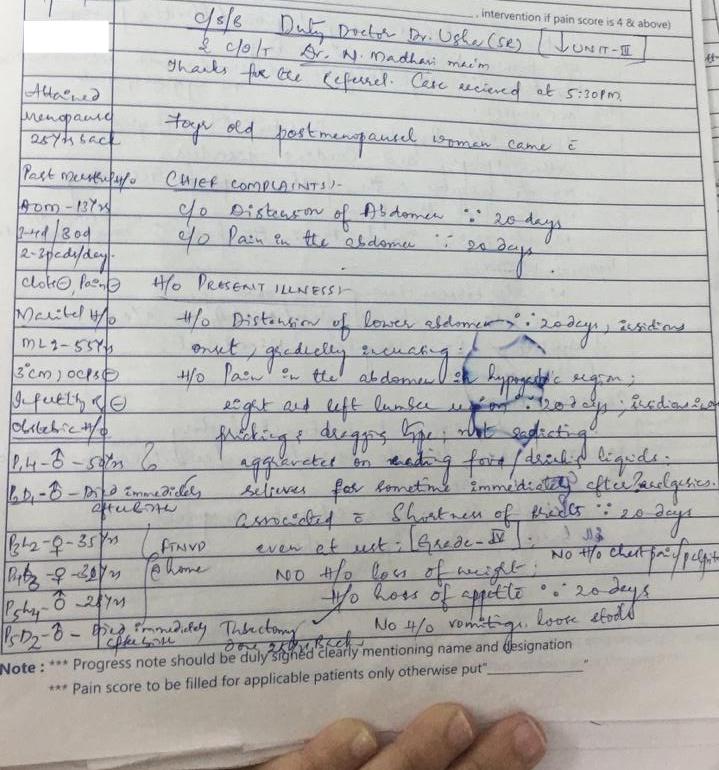 , intervention if pain score is 4 & above)
c/s/B Duty Doctor Dr. Usha (SR) [↓UNIT-III]
& c/o/T Dr. N. Madhavi mam
Thanks for the Referral. Case recieved at 5:30PM.
Attained
Menopause
25yrs back
70yr old postmenopausal women came c̄
Past Menstrual H/o
CHIEF COMPLAINTS:-
AOM - 13yrs
c/o Distension of Abdomen ∵ 20 days
3-4d/30d
c/o Pain in the abdomen ∵ 20 days
2-3pads/day.
clots⊖, Pain⊖
H/o PRESENT ILLNESS:-
Marital H/o
H/o Distension of lower abdomen ∵ 20days, insidious
ML2 - 55yrs
onset, gradually increasing;
3°cm; OCPs⊖
H/o Pain in the abdomen in hypogastric region;
Infertility ⊖
right and left lumbar region ∵ 20days; insidious
Obstetric H/o
pricking & dragging type; not radiating
P1L1-♂-50yrs
aggravates on eating food/drinking liquids.
P2D1-♂-Died immediately
after birth
relieves for sometime immediately after analgesics.
associated c̄ Shortness of breath ∵ 20 days
P3L2-♀-35yrs
FTNVD
even at rest; [Grade-IV];
P4L3-♀-30yrs
@home
No H/o chest pain/palpita
NO H/o loss of weight;
P5L4-♂-28yrs
H/o Loss of appetite ∵ 20 days
P5D2-♂-Died immediately
after birth
Tubectomy
done 28yrs Back
No H/o vomitings, loose stools
Note : *** Progress note should be duly signed clearly mentioning name and designation
*** Pain score to be filled for applicable patients only otherwise put"____________"